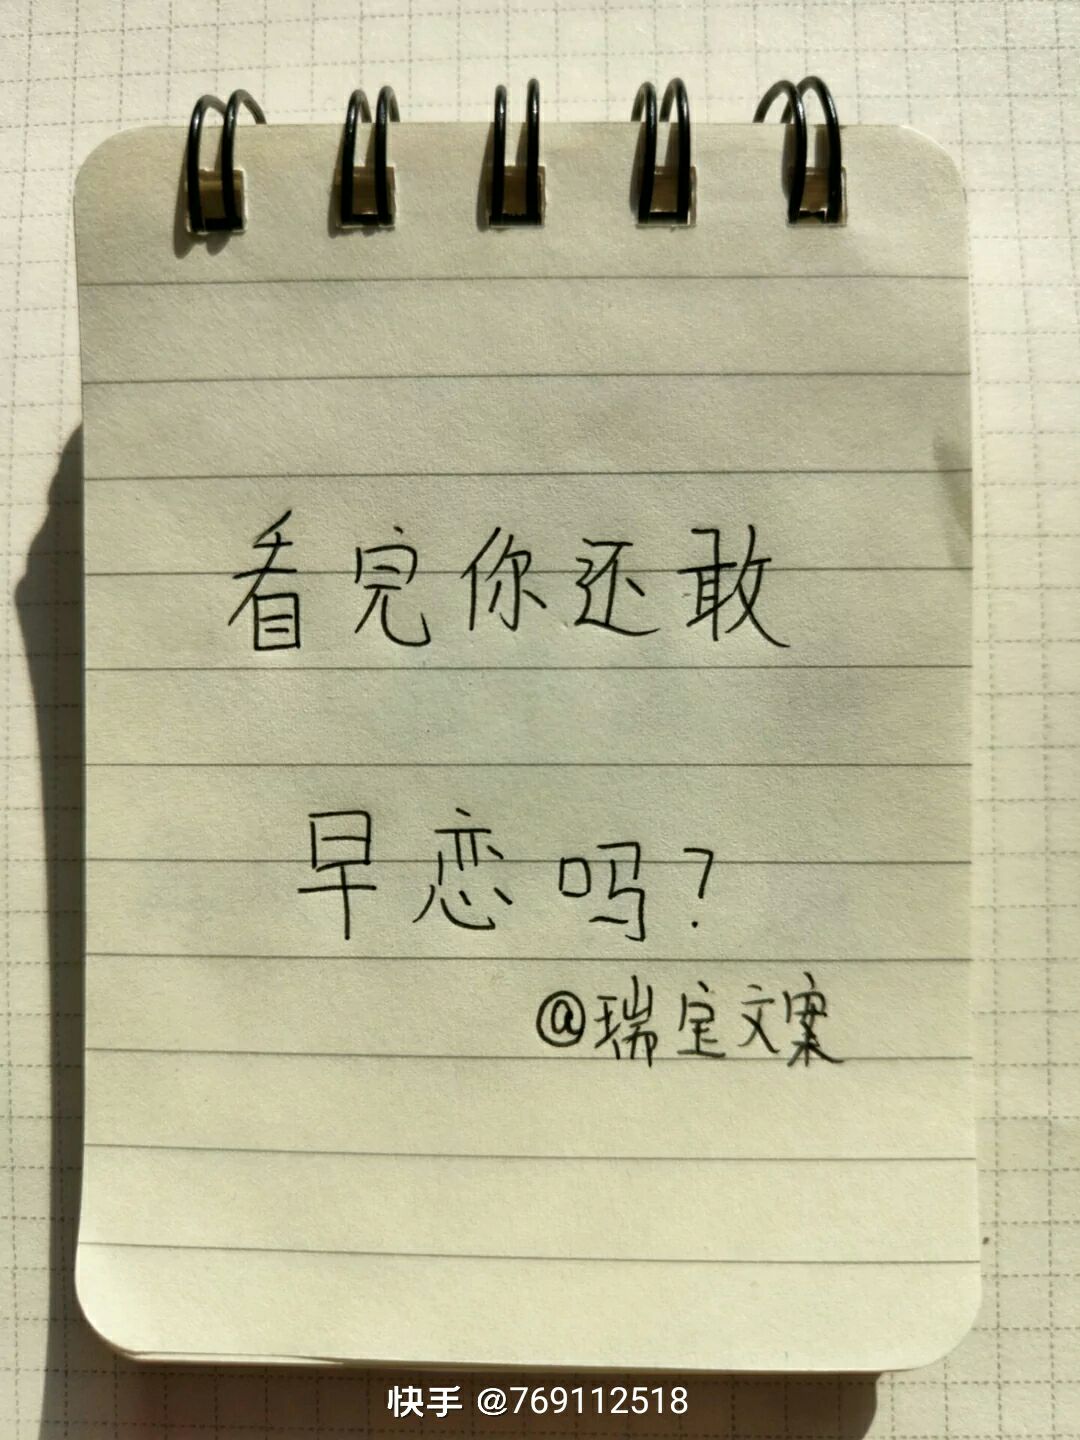 看完你还敢
早恋吗?
@瑞宝文案
快手 @769112518